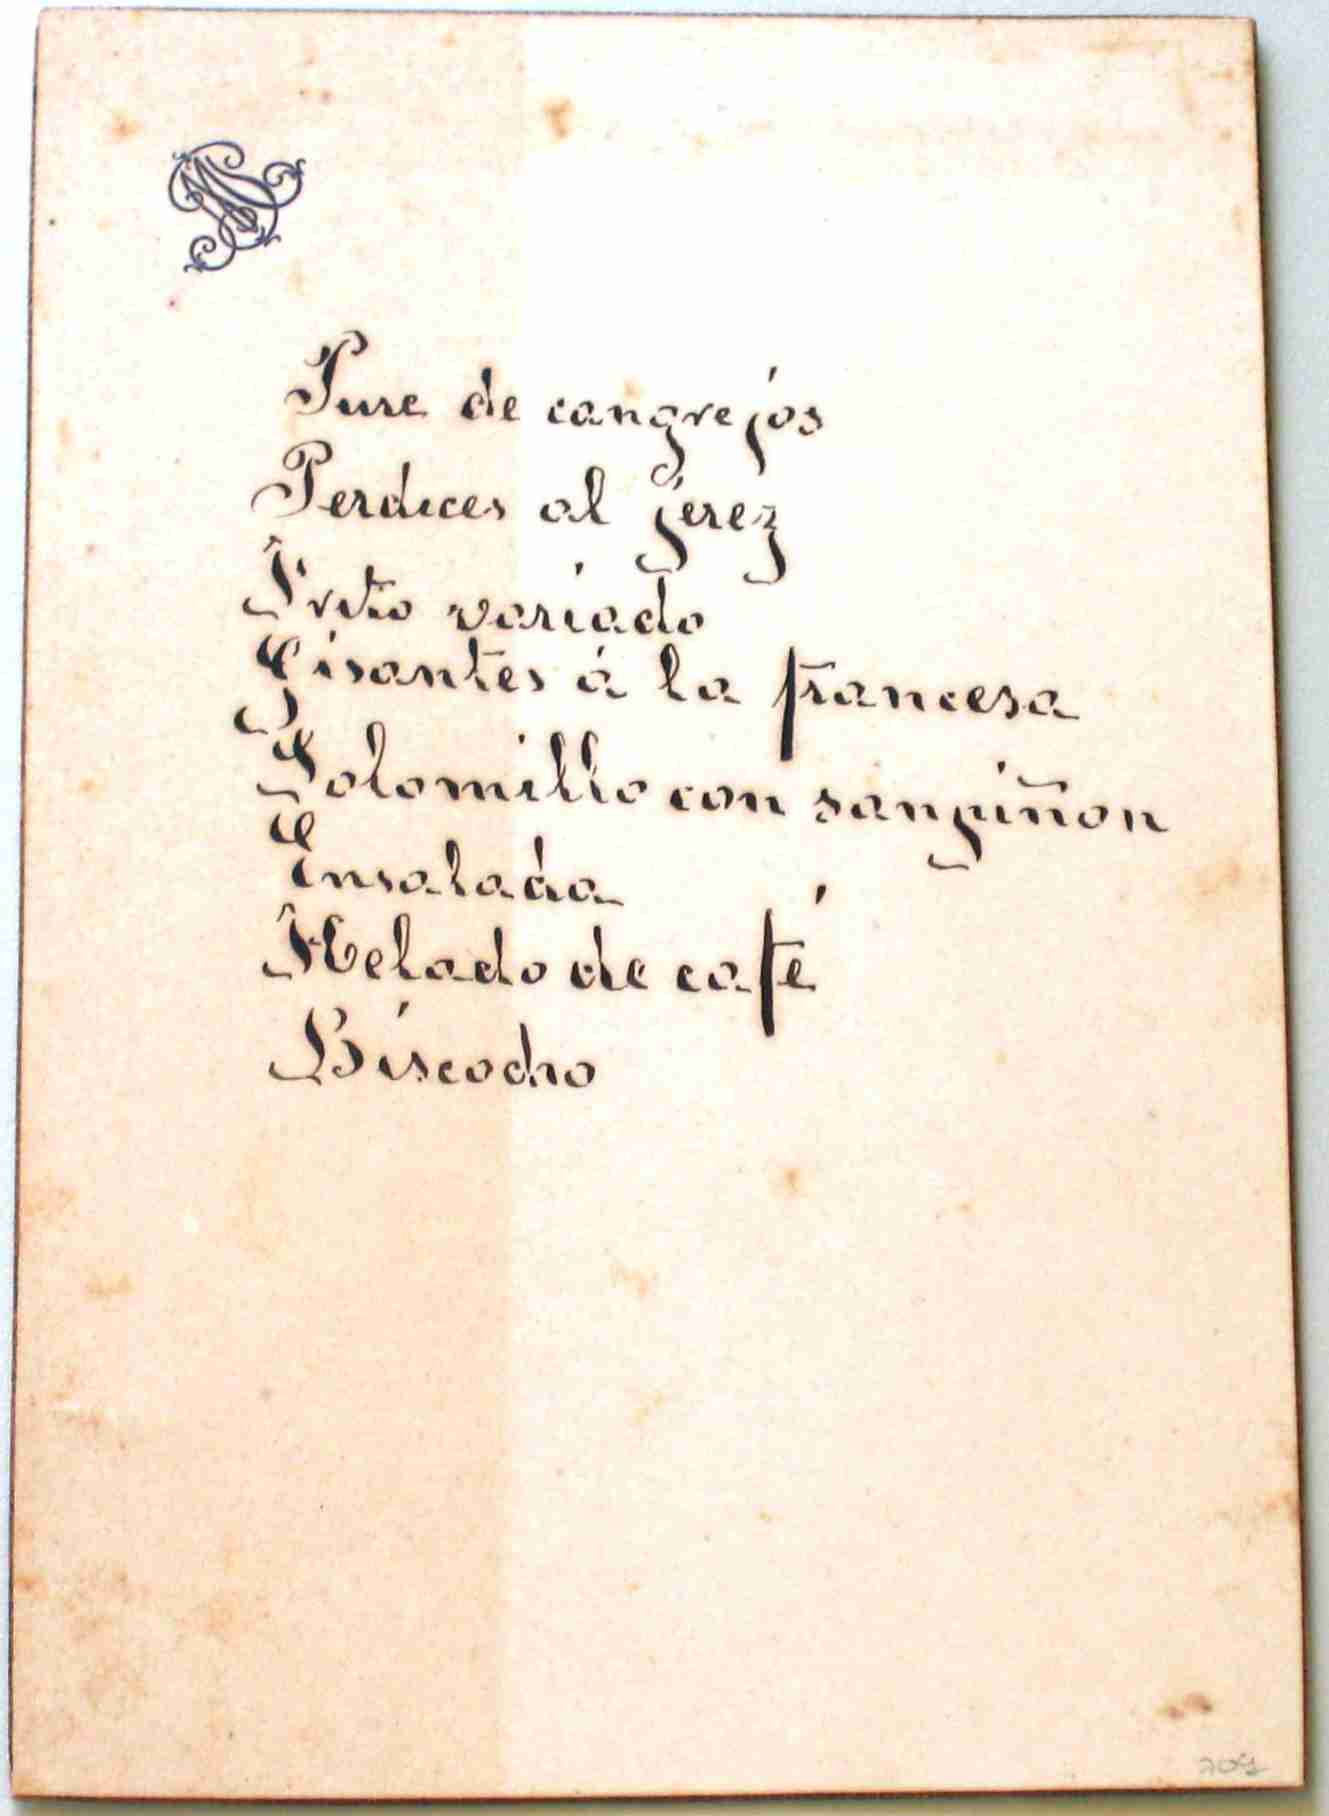 Pure de cangrejos
Perdices al jerez
Frito variado
Gisantes á la francesa
Solomillo con sanpiñon
Ensalada
Helado de café
Biscocho